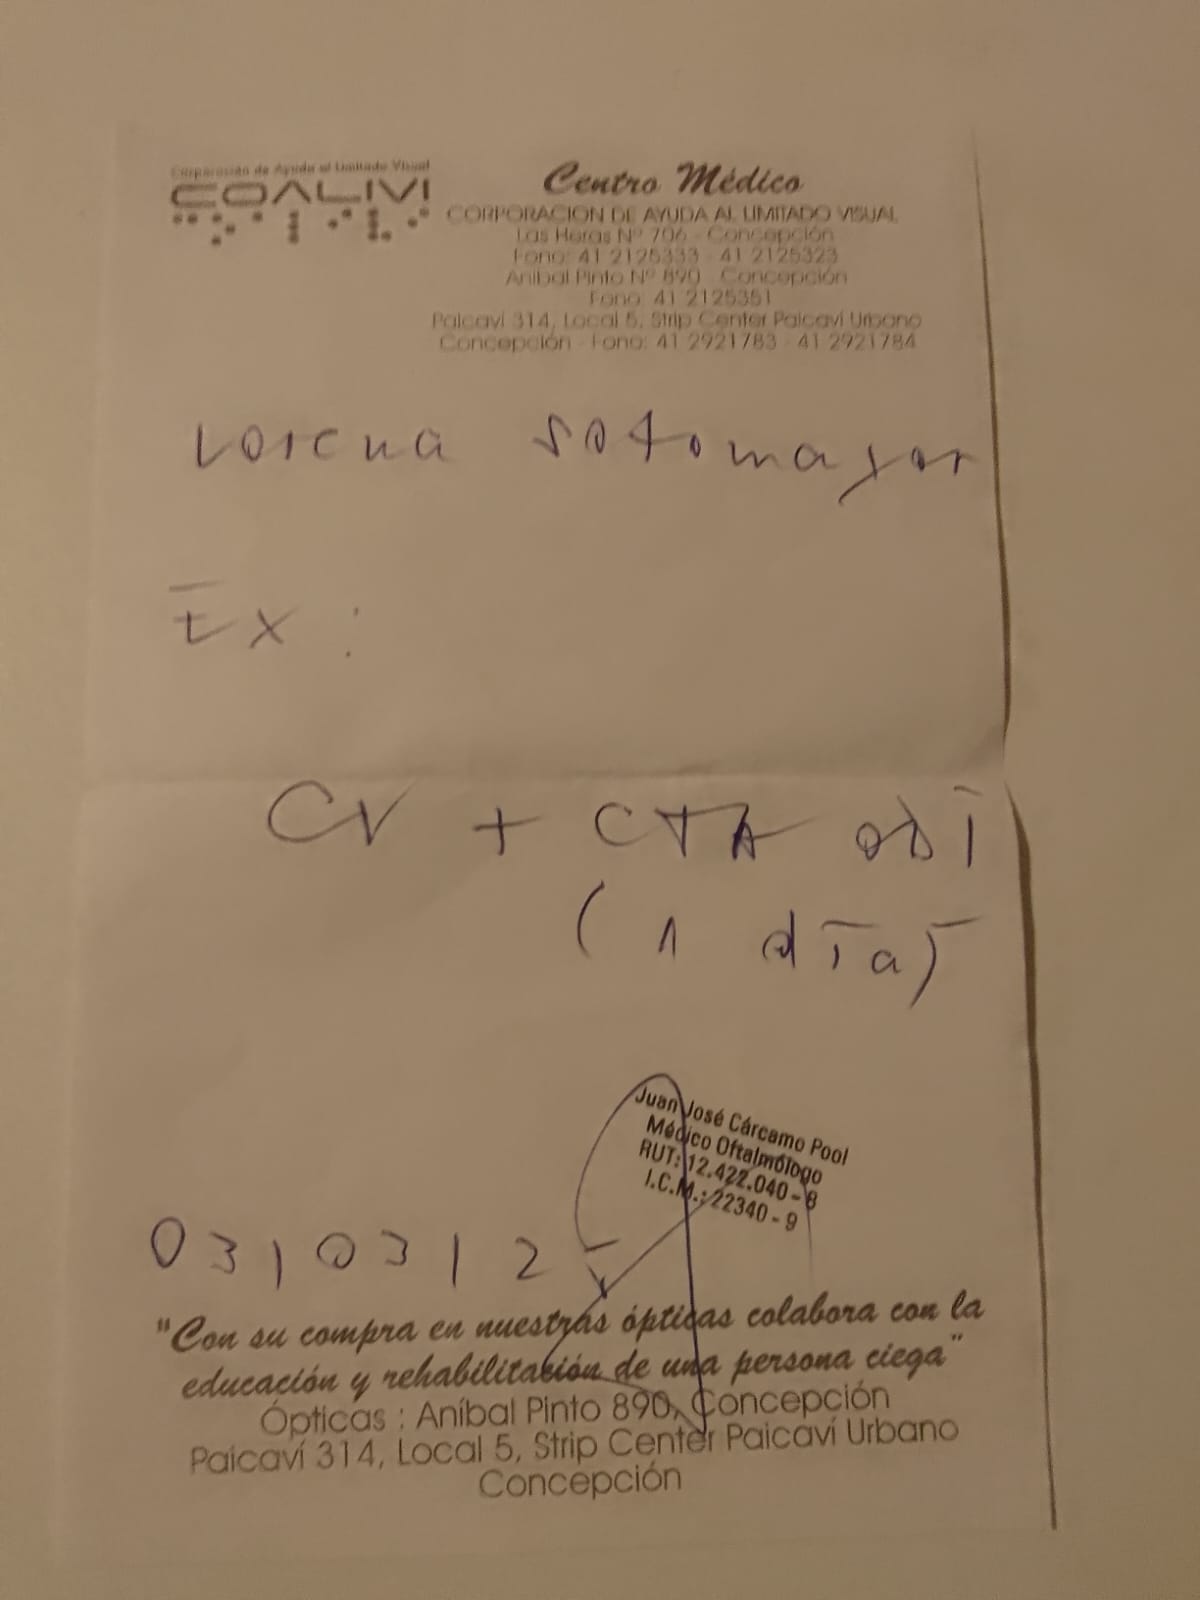 Corporación de Ayuda al Limitado Visual
COALIVI
Centro Médico
CORPORACION DE AYUDA AL LIMITADO VISUAL
Las Heras Nº 706 - Concepción
Fono: 41 2125333 - 41 2125323
Aníbal Pinto Nº 890 - Concepción
Fono: 41 2125351
Paicaví 314, Local 5, Strip Center Paicaví Urbano
Concepción - Fono: 41 2921783 - 41 2921784
Lorena Sotomayor
Ex :
CV + CTA ODI
(1 día)
Juan José Cárcamo Pool
Médico Oftalmólogo
RUT: 12.422.040 - 8
I.C.M.: 22340 - 9
03/03/25
"Con su compra en nuestras ópticas colabora con la
educación y rehabilitación de una persona ciega"
Ópticas : Aníbal Pinto 890, Concepción
Paicaví 314, Local 5, Strip Center Paicaví Urbano
Concepción